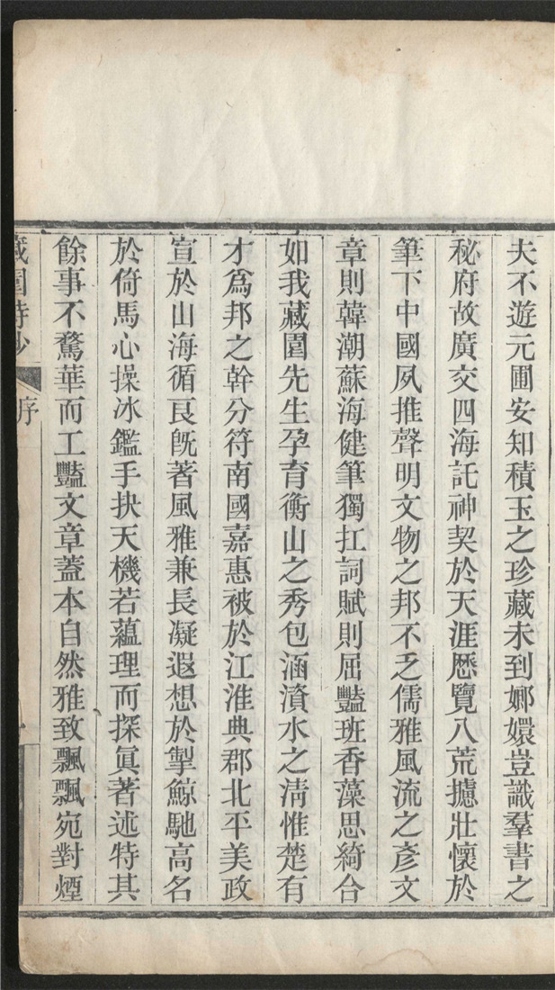 夫不遊元圃安知積玉之珍藏未到嫏嬛豈識羣書之
秘府故廣交四海託神契於天涯歷覽八荒攄壯懷於
筆下中國夙推聲明文物之邦不乏儒雅風流之彥文
章則韓潮蘇海健筆獨扛詞賦則屈豔班香藻思綺合
如我藏園先生孕育衡山之秀包涵濱水之淸惟楚有
才爲邦之幹分符南國嘉惠被於江淮典郡北平美政
宣於山海循良旣著風雅兼長凝遐想於掣鯨馳高名
於倚馬心操冰鑑手抉天機若蘊理而探眞著述特其
餘事不騖華而工豔文章蓋本自然雅致飄飄宛對煙
藏園詩鈔
序